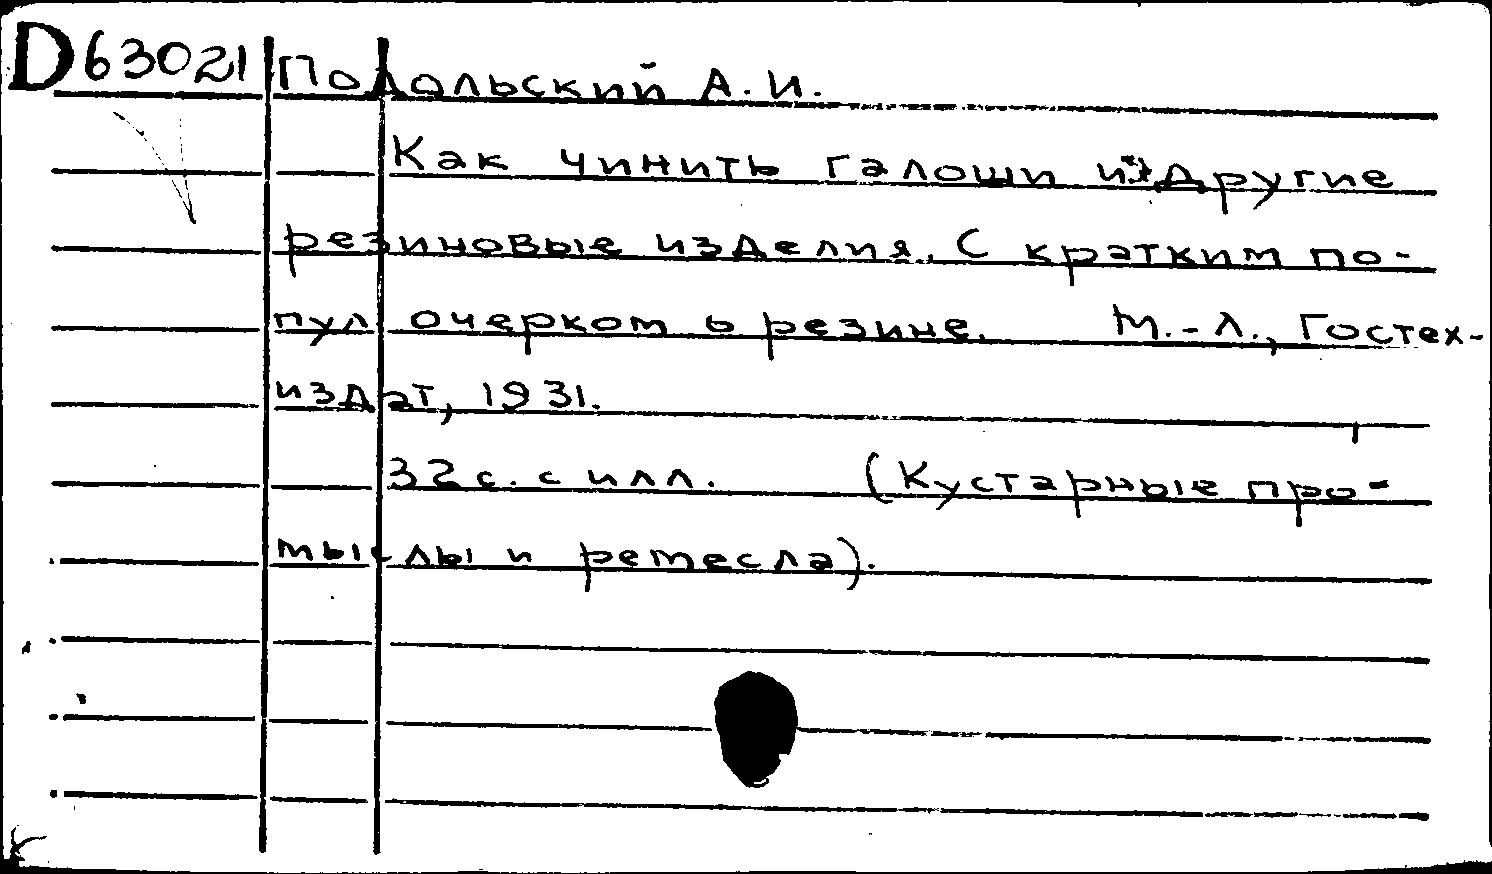 D63021 Подольский А. И.
Как чинить галоши и другие
резиновые изделия. С кратким по-
пул очерком о резине. М.-Л., Гостех-
издат, 1931.
32 с. с илл. (Кустарные про-
мыслы и ремесла).